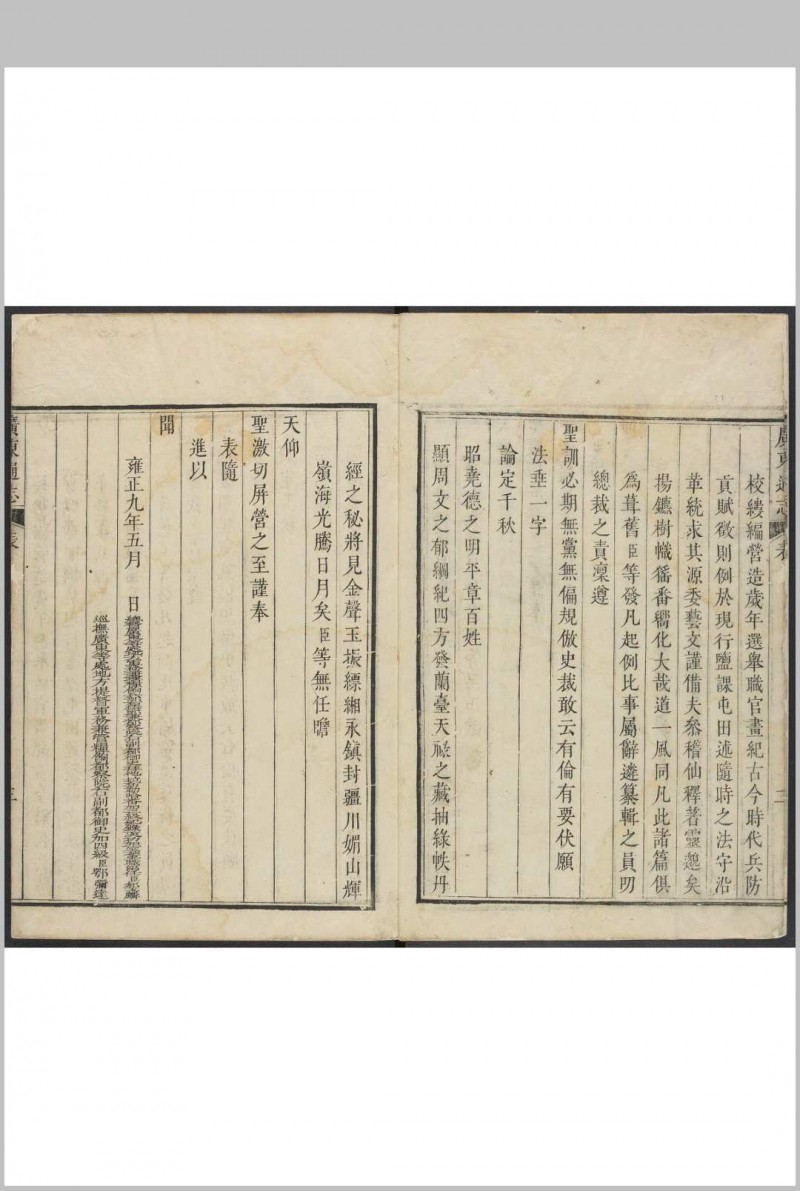 廣東通志 表 三
校縷編營造歲年選舉職官畫紀古今時代兵防
貢賦徵則例於現行鹽課屯田述隨時之法守沿
革統求其源委藝文謹備夫叅稽仙釋著靈䠂矣
揚鑣樹幟猺番嚮化大哉道一風同凡此諸篇俱
爲葺舊臣等發凡起例比事屬辭遴纂輯之員叨
總裁之責凜遵
聖訓必期無黨無偏規倣史裁敢云有倫有要伏願
法垂一字
論定千秋
昭堯德之明平章百姓
顯周文之郁綱紀四方發蘭臺天祿之藏抽綠帙丹
經之秘將見金聲玉振縹緗永鎮封疆川媚山輝
嶺海光騰日月矣臣等無任瞻
天仰
聖激切屏營之至謹奉
表隨
進以
聞
雍正九年五月 日
巡撫廣東等處地方提督軍務兼管糧餉都察院右副都御史加四級臣鄂彌達
廣東通志 表 三